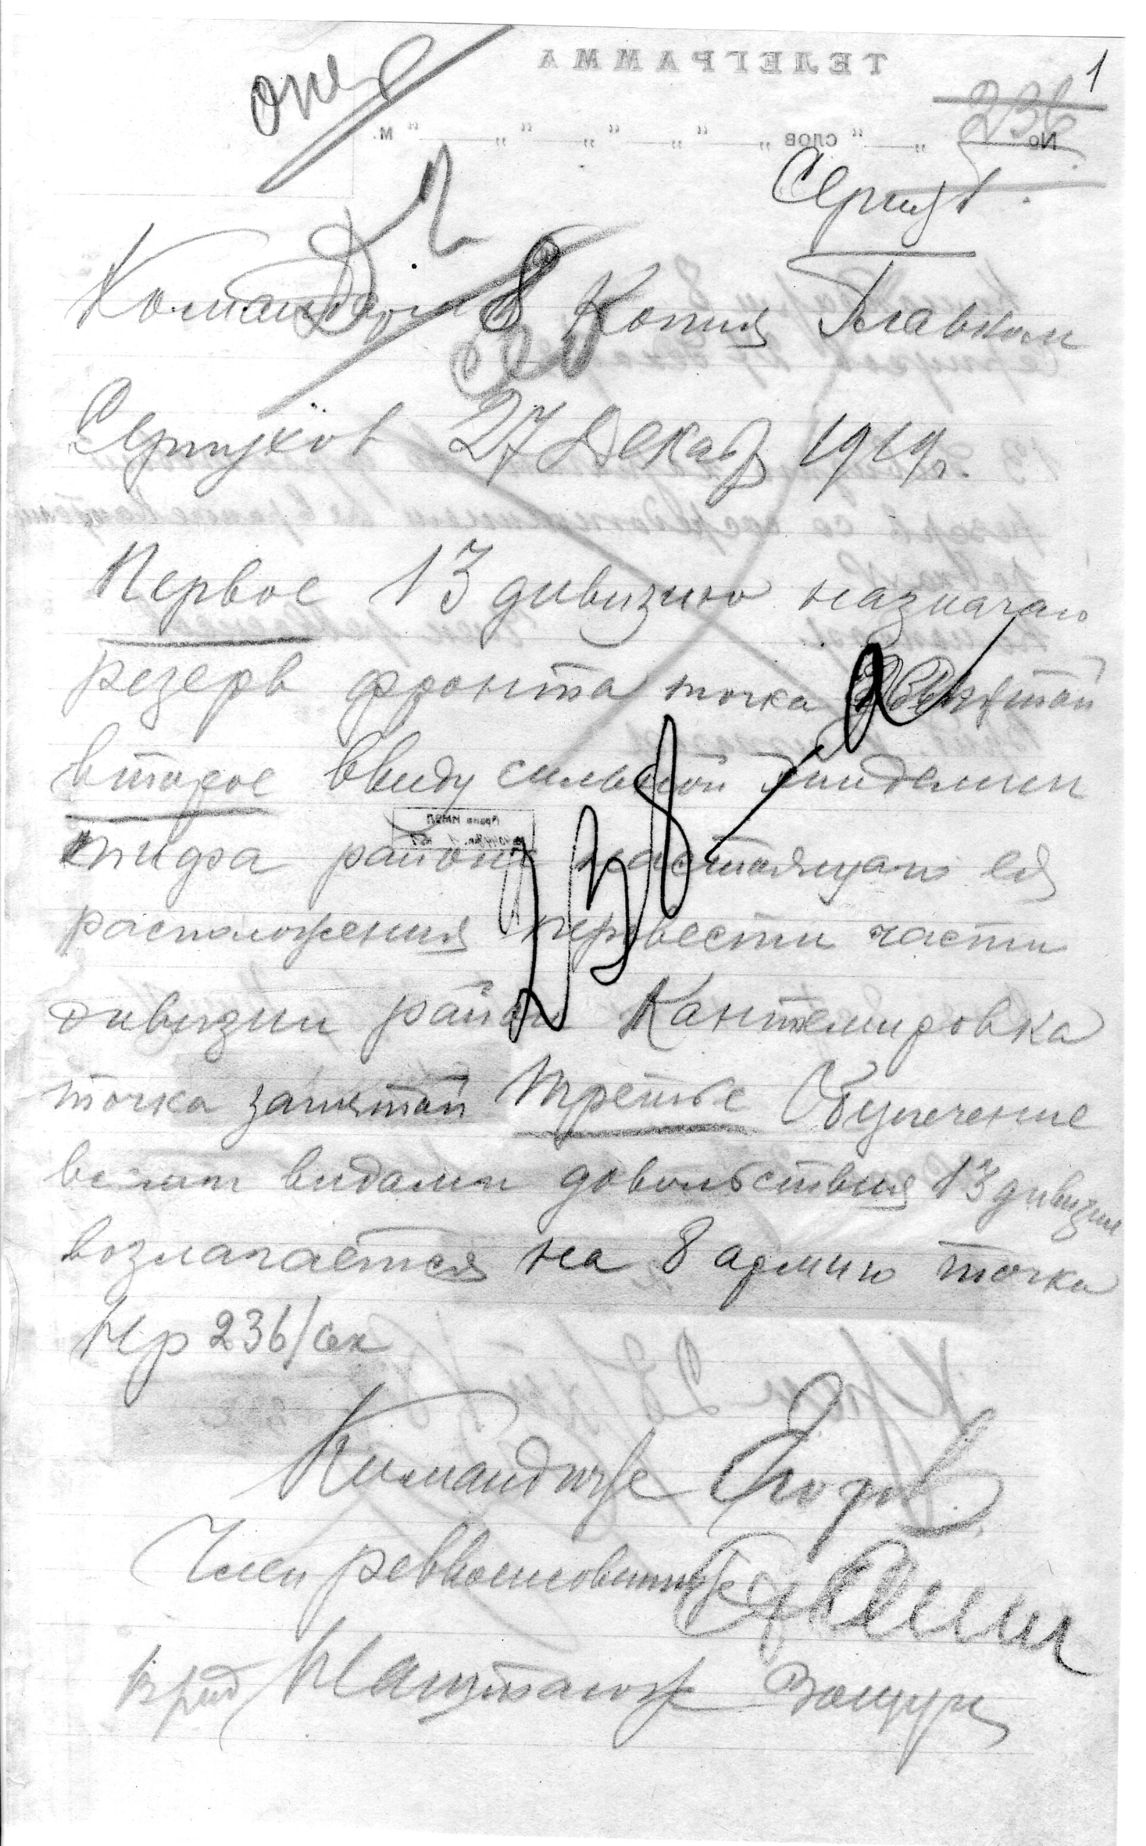 1
опер
236
Командарм 8 Копия Главком
Серпухов 27 Декабр 1919г.
Первое 13 дивизию назначаю
резерв фронта точка
второе ввиду сильной эпидемии
тифа районе настоящаго ея
расположения перевести части
дивизии район Кантемировка
точка запятой Третье Обеспечение
всеми видами довольствия 13 дивизии
возлагается на 8 армию точка
Нр 236/сек
238-а
Командюж Егоров
Член реввоенсовета
Врид Наштаюж